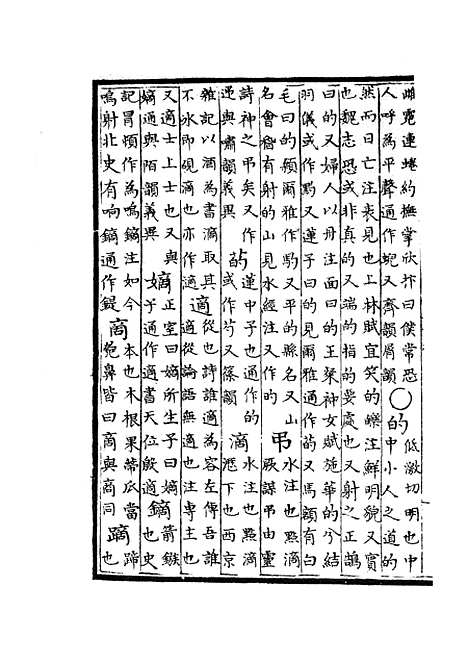 雌霓連蜷約撫掌欣抃曰僕常恐
人呼為平聲通作蜺又齊韻屑韻
〇的
低激切明也中
小人之道的
然而日亡注表見也上林賦宜笑的皪注鮮明貌又實
也魏志恐或非真的又端的指的要處也又射之正鵠
曰的又婦人以丹注面曰的王粲神女賦施華的兮結
羽儀或作又蓮子曰的見爾雅通作菂又馬顙有白
毛曰的顙爾雅作馰又平的縣名又山
名會稽有射的山見水經注又作旳
弔
厥謀弔由靈
詩神之弔矣又作
迡與嘯韻義異
菂
蓮中子也通作的
或作芍又篠韻
滴
水注也點滴
瀝下也西京
雜記以酒為書滴取其
不冰即硯滴也亦作適
適
從也詩誰適為容左傳吾誰
適從論語無適也注專主也
又適士上士也又與
嫡通與陌韻義異
嫡
正室曰嫡所生子曰嫡
子通作適書天位殷適
鏑
箭鏃
也史
記冒頓作為鳴鏑注如今
鳴射北史有响鏑通作鍉
啇
本也木根果蒂瓜當
鼻皆曰啇與商同
蹢
蹄
也